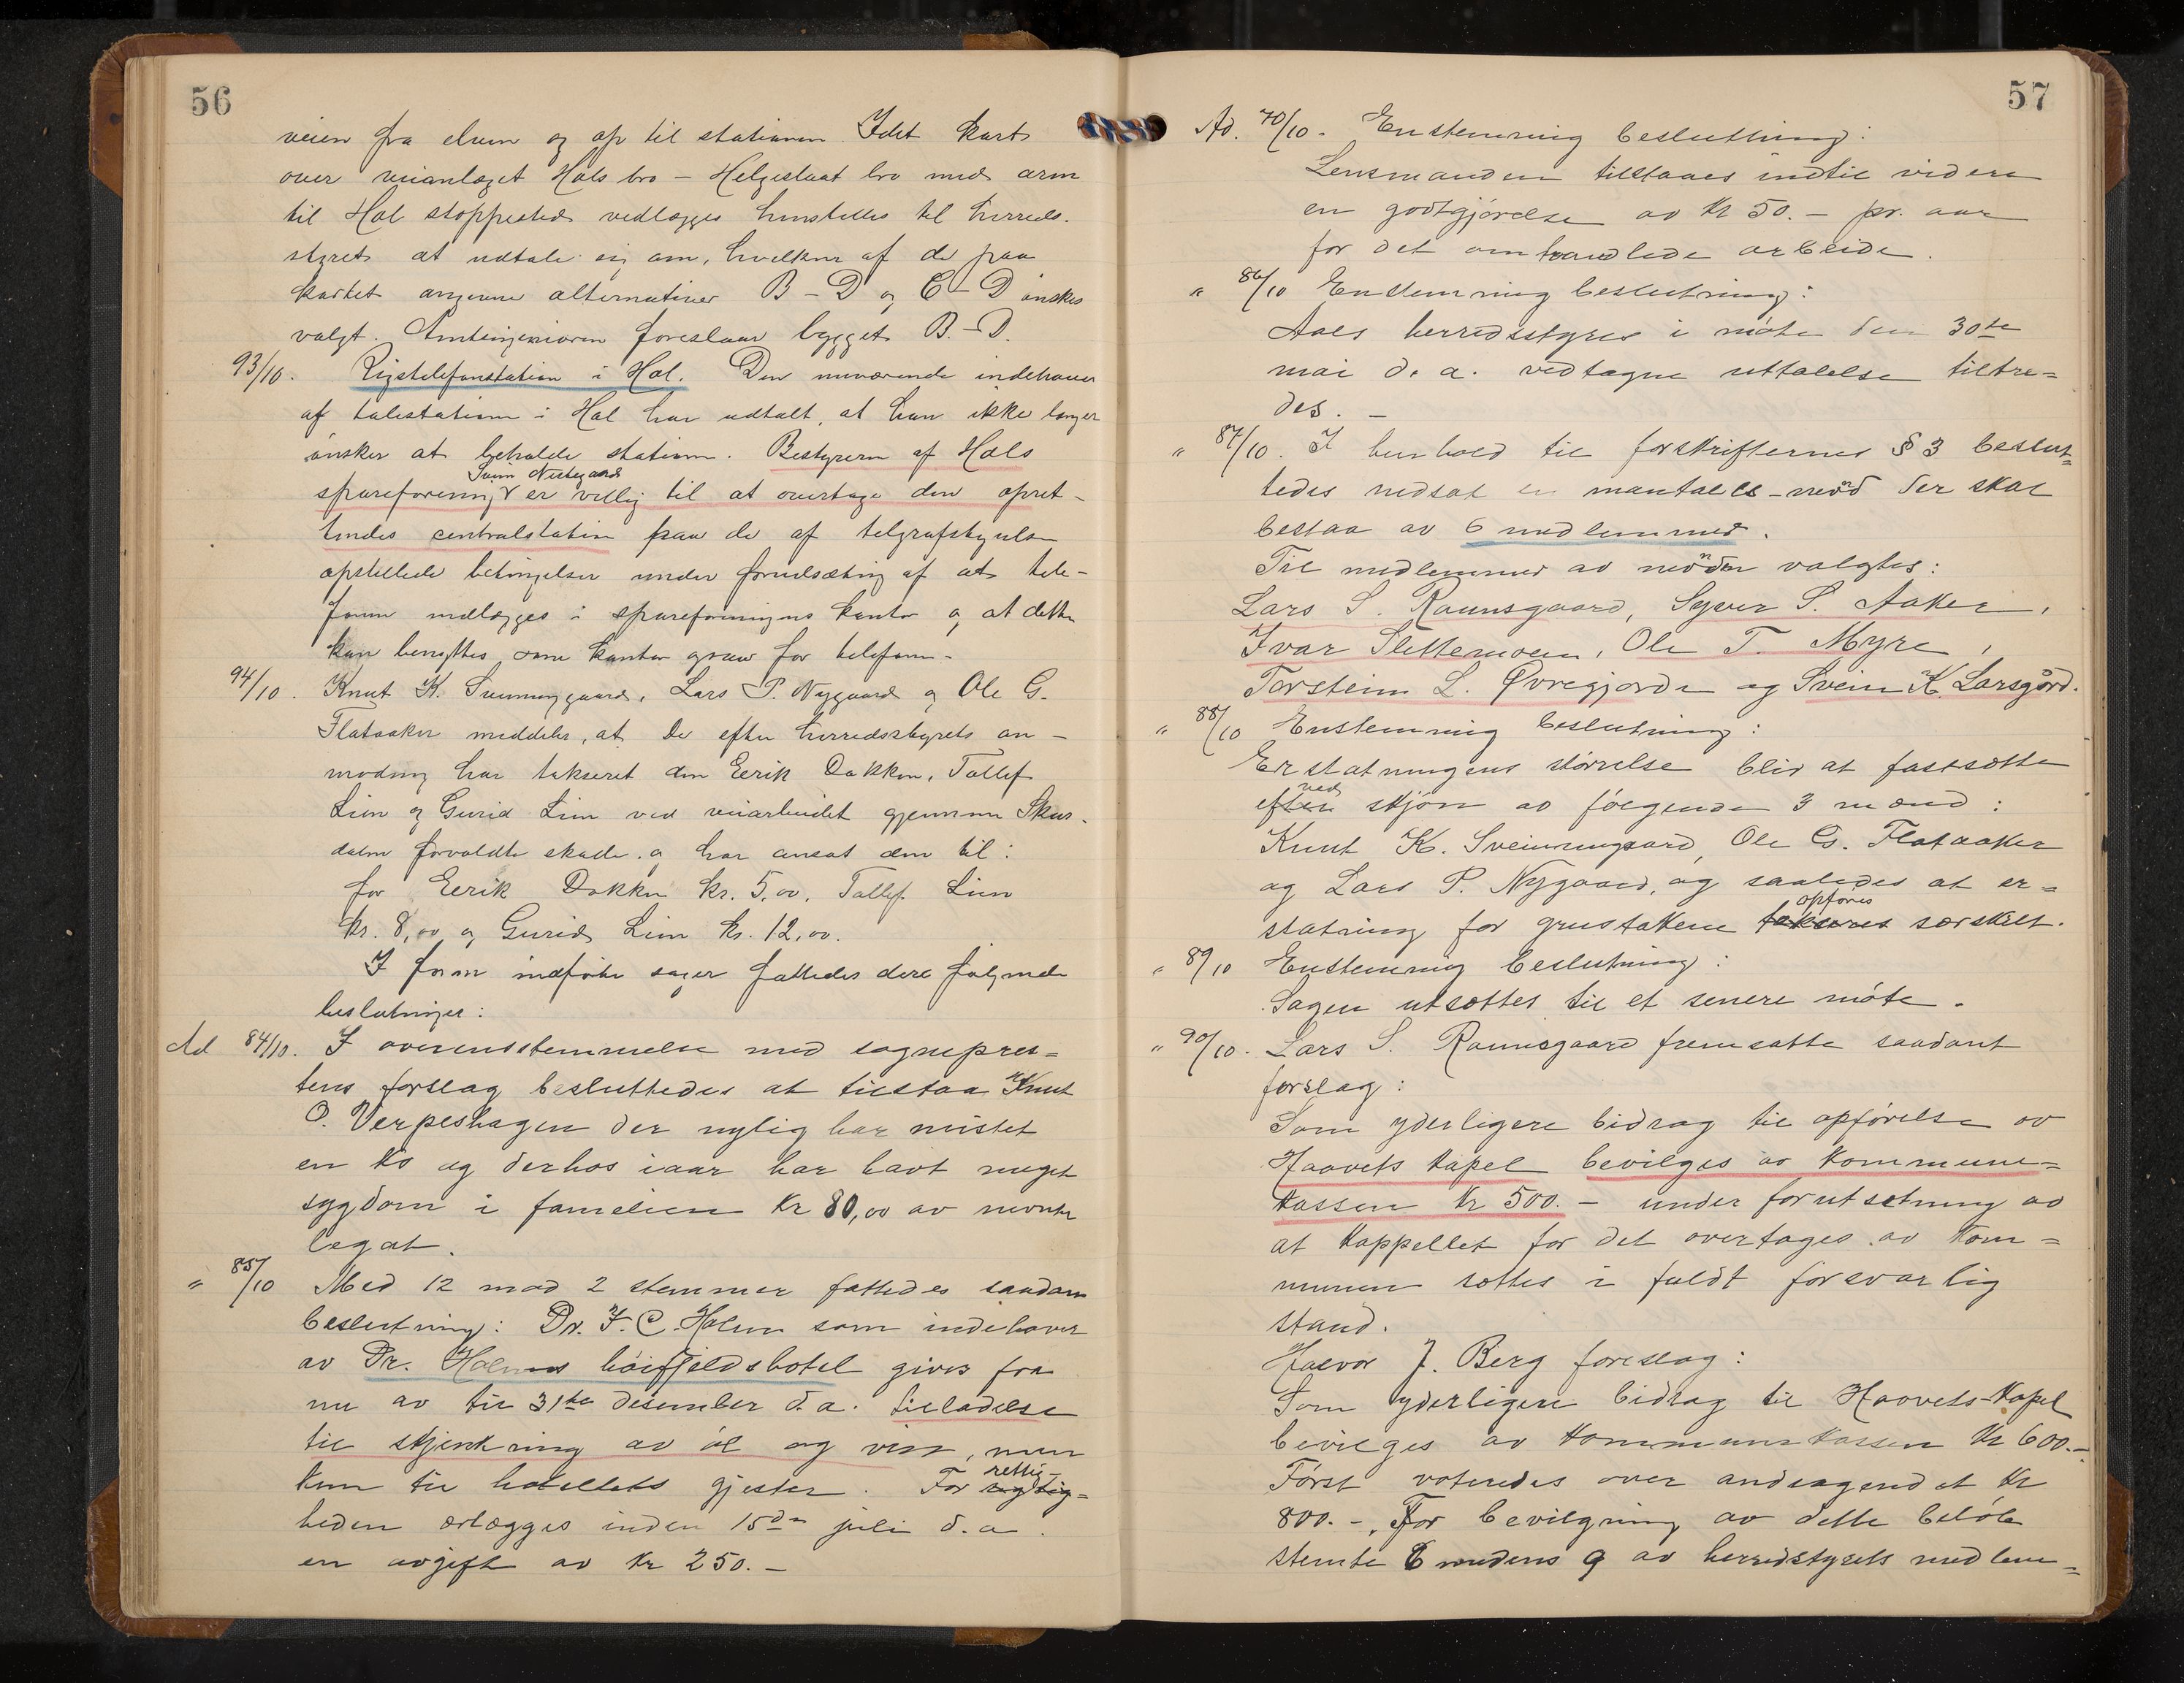 56
veien fra elven og op til stationen. Idet kart
over veianlæget Hols bro – Helgeslaat bro med arm
til Hol stoppested vedlægges henstilles til herreds-
styret at udtale sig om, hvilken af de paa
kartet angivne alternativer B – D og C – D ønskes
valgt. Amtsingeniøren foreslaar bygget B. – D.
93/10. Rigstelefonstation i Hol. Den nuværende indehaver
af talestationen i Hol har udtalt, at han ikke længer
ønsker at beholde stationen. Bestyreren af Hols
Svein Nestegaard
spareforening er villig til at overtage den opret-
tendes centralstation paa de af telegrafstyrelsen
opstillede betingelser under forudsætning af at tele-
fonen indlægges i spareforeningens kontor og at dette
kan benyttes som kontor ogsaa for telefonen.
94/10. Knut K. Sveinunggaard, Lars P. Nygaard og Ole G.
Flataaker meddeler, at de efter herredsstyrets an-
modning har takseret den Eerik Dokken, Tollef
Lien og Gurid Lien ved veiarbeidet gjennem Skur-
dalen forvoldte skade og har ansat den til:
for Eerik Dokken kr. 5,00, Tollef Lien
kr. 8,00 og Gurid Lien kr. 12,00.
I foran indførte sager fattedes dere følgende
beslutninger:
Ad 84/10. I overensstemmelse med sognepres=
tens forslag besluttedes at tilstaa Knut
O. Verpeshagen der nylig har mistet
en ko og derhos iaar har havt meget
sygdom i familien kr 80,00 av
legat.
" 85/10 Med 12 mod 2 stemmer fattedes saadan
beslutning: Dr. I. C. Holm som indehaver
av Dr. Holms høifjeldshotel gives fra
nu av til 31te desember d.a. tilladelse
til skjenkning av øl og vin, men
kun til hotellets gjester. For rettig-
rigtig=
heden erlægges inden 15de juli d.a.
en avgift av kr 250.–
57
Ad. 70/10. Enstemmig beslutning:
Lensmanden tilstaaes indtil videre
en godtgjørelse av kr 50.– pr. aar
for det omhandlede arbeide.
" 86/10 Enstemmig beslutning:
Aals herredsstyres i møte den 30te
mai d.a. vedtagne uttalelse tiltræ=
des. –
" 87/10. I henhold til forskrifternes § 3 beslut=
tedes nedsat en mantals-nevnd der skal
bestaa av 6 medlemmer.
Til medlemmer av nevnden valgtes:
Lars S. Raunsgaard, Syver S. Aaker,
Ivar Slettemoen, Ole T. Myre,
Torstein L. Øvregjorde og Svein K. Larsgård.
" 88/10 Enstemmig beslutning:
Erstatningens størrelse blir at fastsætte
ved
efter skjøn av følgende 3 mænd:
Knut K. Sveinunggaard, Ole G. Flataaker
og Lars P. Nygaard, og saaledes at er=
opføres
statning for grustakene takseres særskilt.
" 89/10 Enstemmig beslutning:
Sagen utsættes til et senere møte.
" 90/10. Lars S. Raunsgaard fremsatte saadant
forslag:
Som yderligere bidrag til opførelse av
Haavets kapel bevilges av kommune=
kassen kr 500.– under forutsetning av
at kappellet før det overtages av kom=
munen sættes i fuldt forsvarlig
stand.
Halvor J. Berg foreslog:
Som yderligere bidrag til Haavets-kapel
bevilges av kommunekassen kr 600.–
Først voteredes over andragendet kr
800.–. For bevilgning av dette beløb
stemte 6 medens 9 av herredstyrets medlem=